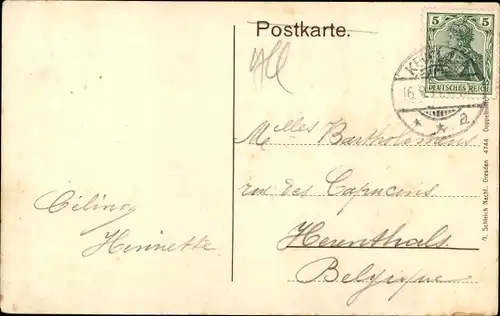 Postkarte.
5 5
DEUTSCHES REICH
16.
* * a
All
Melles Bartholomeus
rue des Capucins
Herenthals
Belgique
Célina
Henriette
R. Schleich Nachf. Dresden 4744